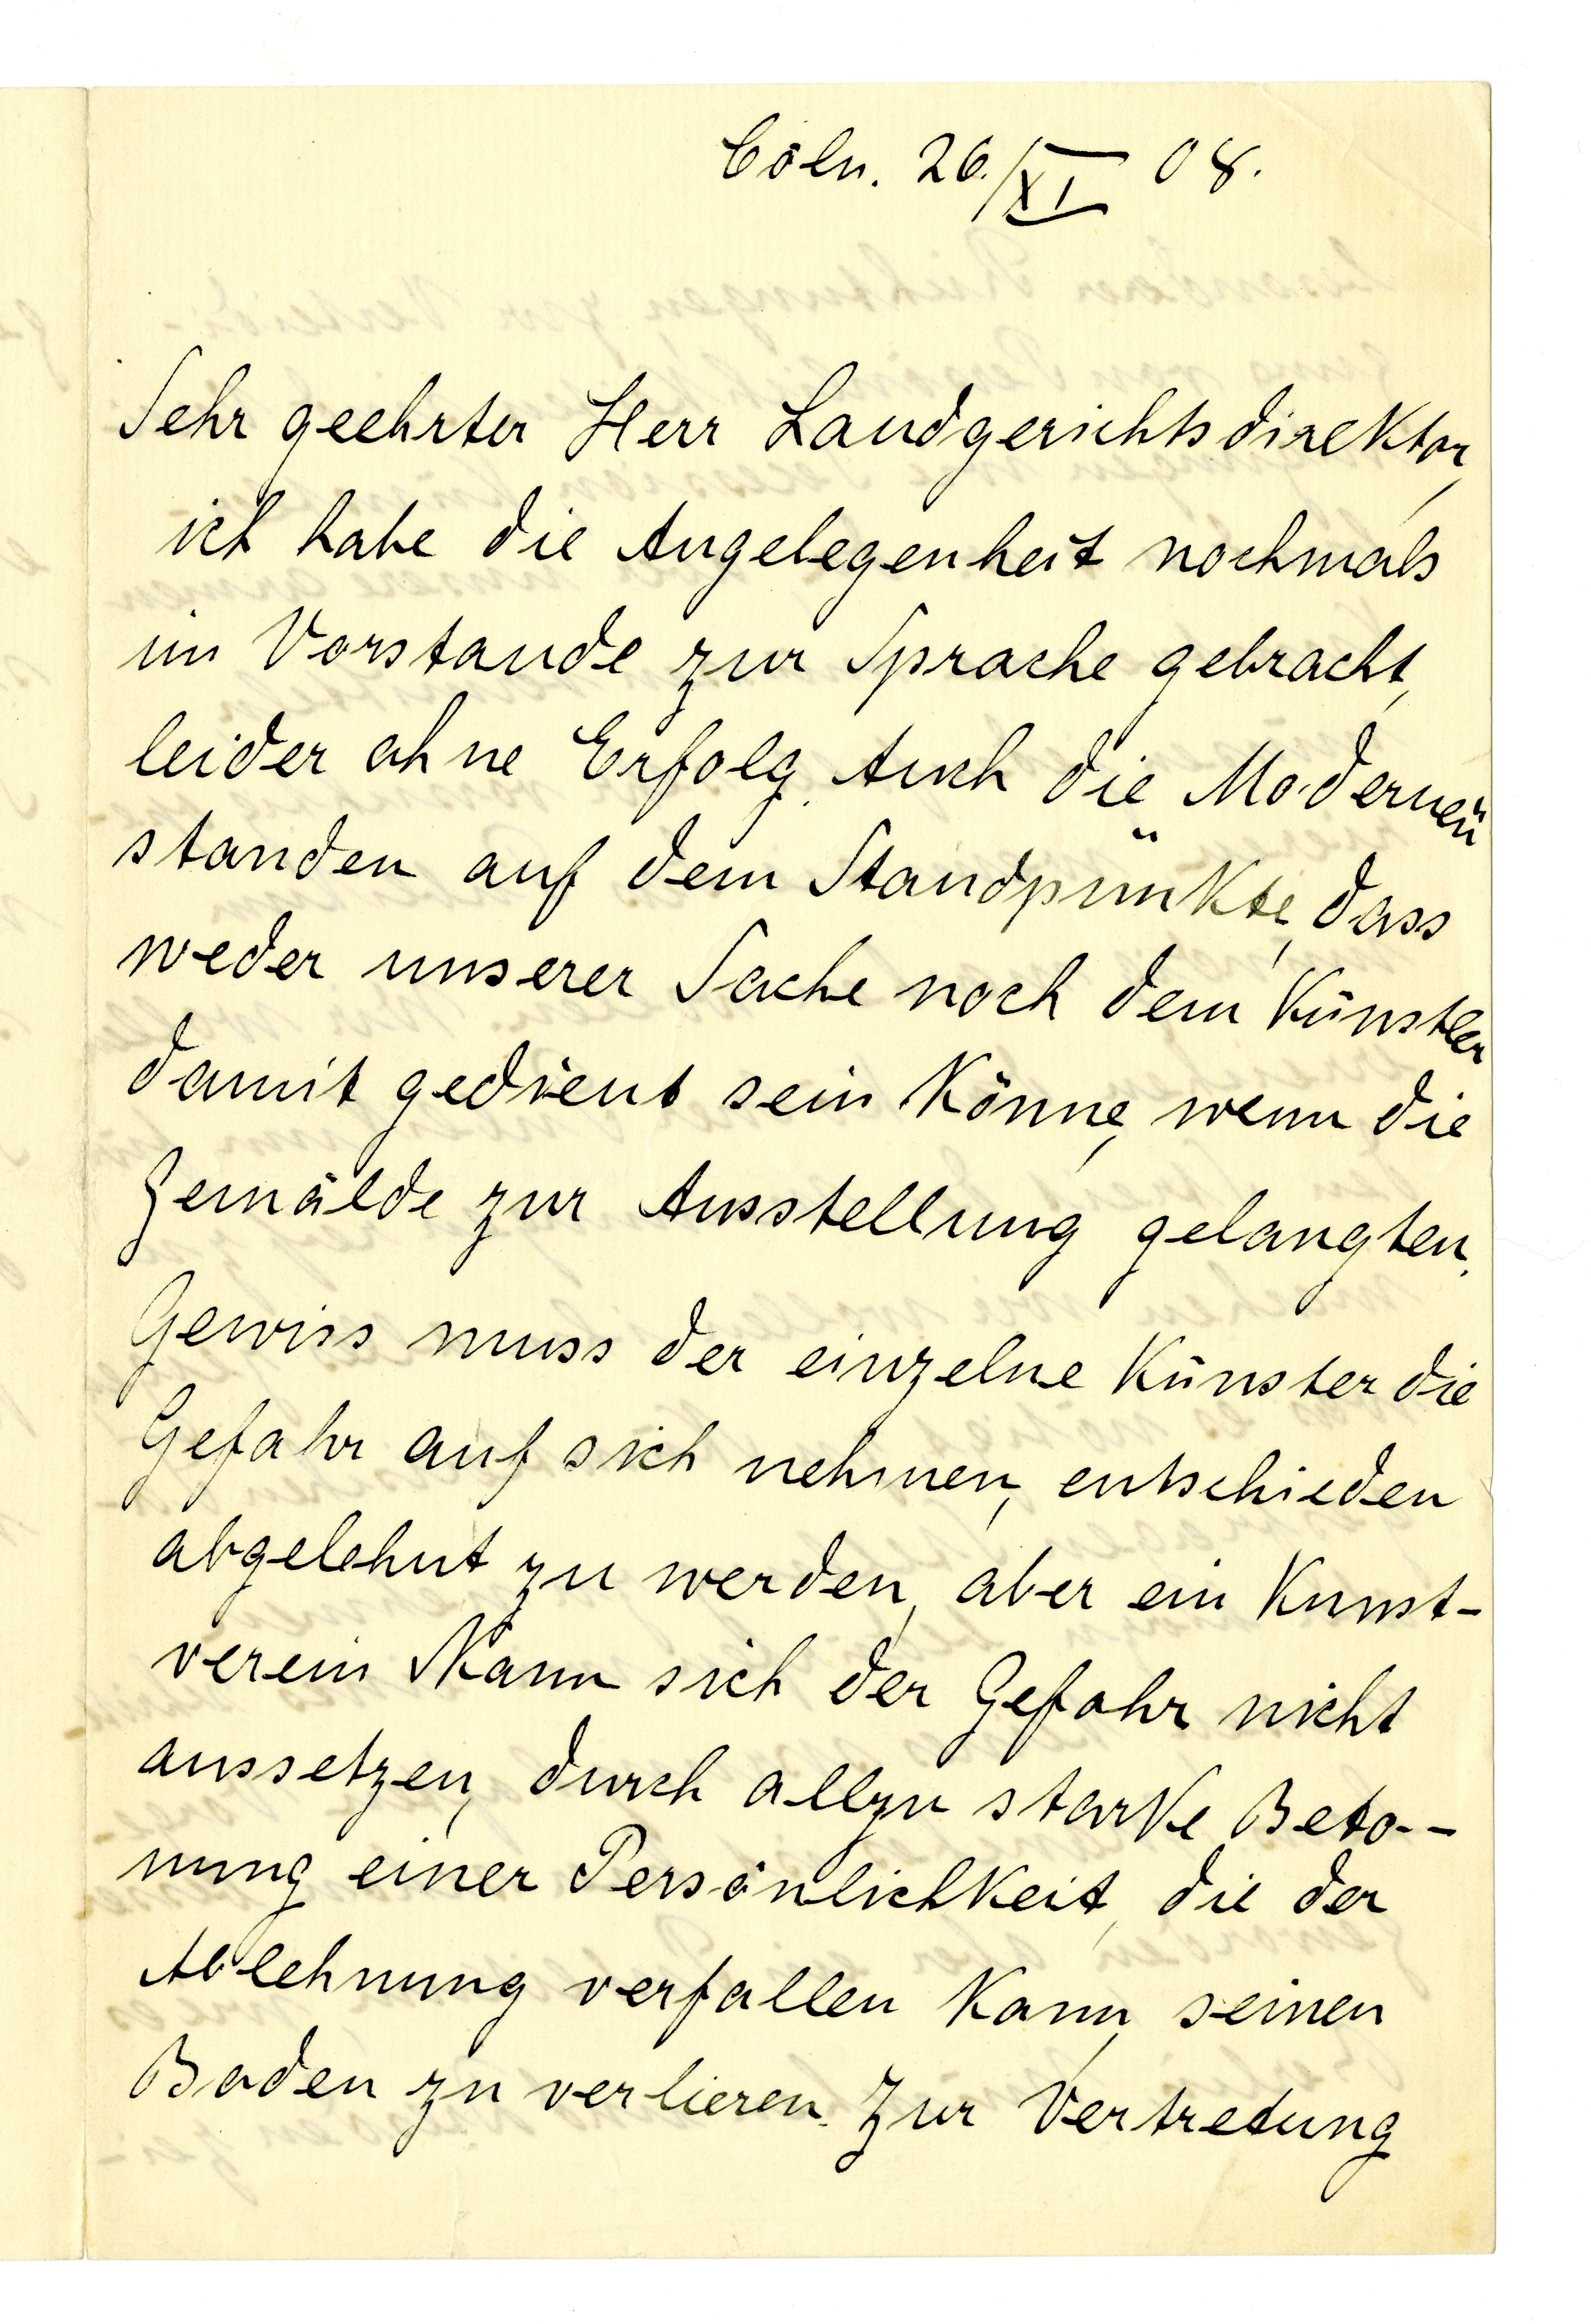 Cöln. 26./XI 08.
Sehr geehrter Herr Landgerichtsdirektor,
ich habe die Angelegenheit nochmals
im Vorstande zur Sprache gebracht,
leider ohne Erfolg. Auch die „Modernen“
standen auf dem Standpunkte, dass
weder unserer Sache noch dem Künstler
damit gedient sein könne, wenn die
Gemälde zur Ausstellung gelangten.
Gewiss muss der einzelne Künster die
Gefahr auf sich nehmen, entschieden
abgelehnt zu werden, aber ein Kunst-
verein kann sich der Gefahr nicht
aussetzen, durch allzu starke Beto-
nung einer Persönlichkeit, die der
Ablehnung verfallen kann, seinen
Boden zu verlieren. Zur Vertretung